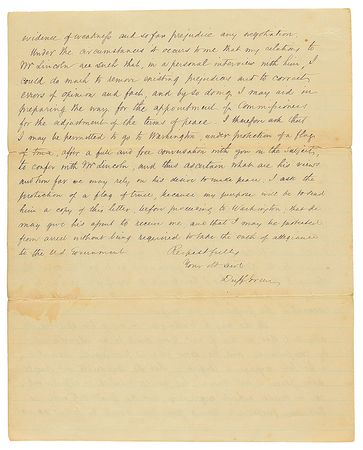 evidence of weakness and so far prejudice any negotiation.
Under the circumstances it occurs to me that my relations to
Mr Lincoln are such that, in a personal interview with him, I
could do much to remove existing prejudices and to correct
errors of opinion and fact, and by so doing I may aid in
preparing the way for the appointment of Commissioners
for the adjustment of the terms of peace. I therefore ask that
I may be permitted to go to Washington, under protection of a flag
of truce, after a full and free conversation with you on the subject,
to confer with Mr Lincoln, and thus ascertain what are his views
and how far we may rely on his desire to make peace. I ask the
protection of a flag of truce, because my purpose will be to send
him a copy of this letter, before proceeding to Washington, that he
may give his assent to receive me and that I may be protected
from arrest without being required to take the oath of allegiance
to the U.S. Government
Respectfully
Your obt Servt
Duff Green